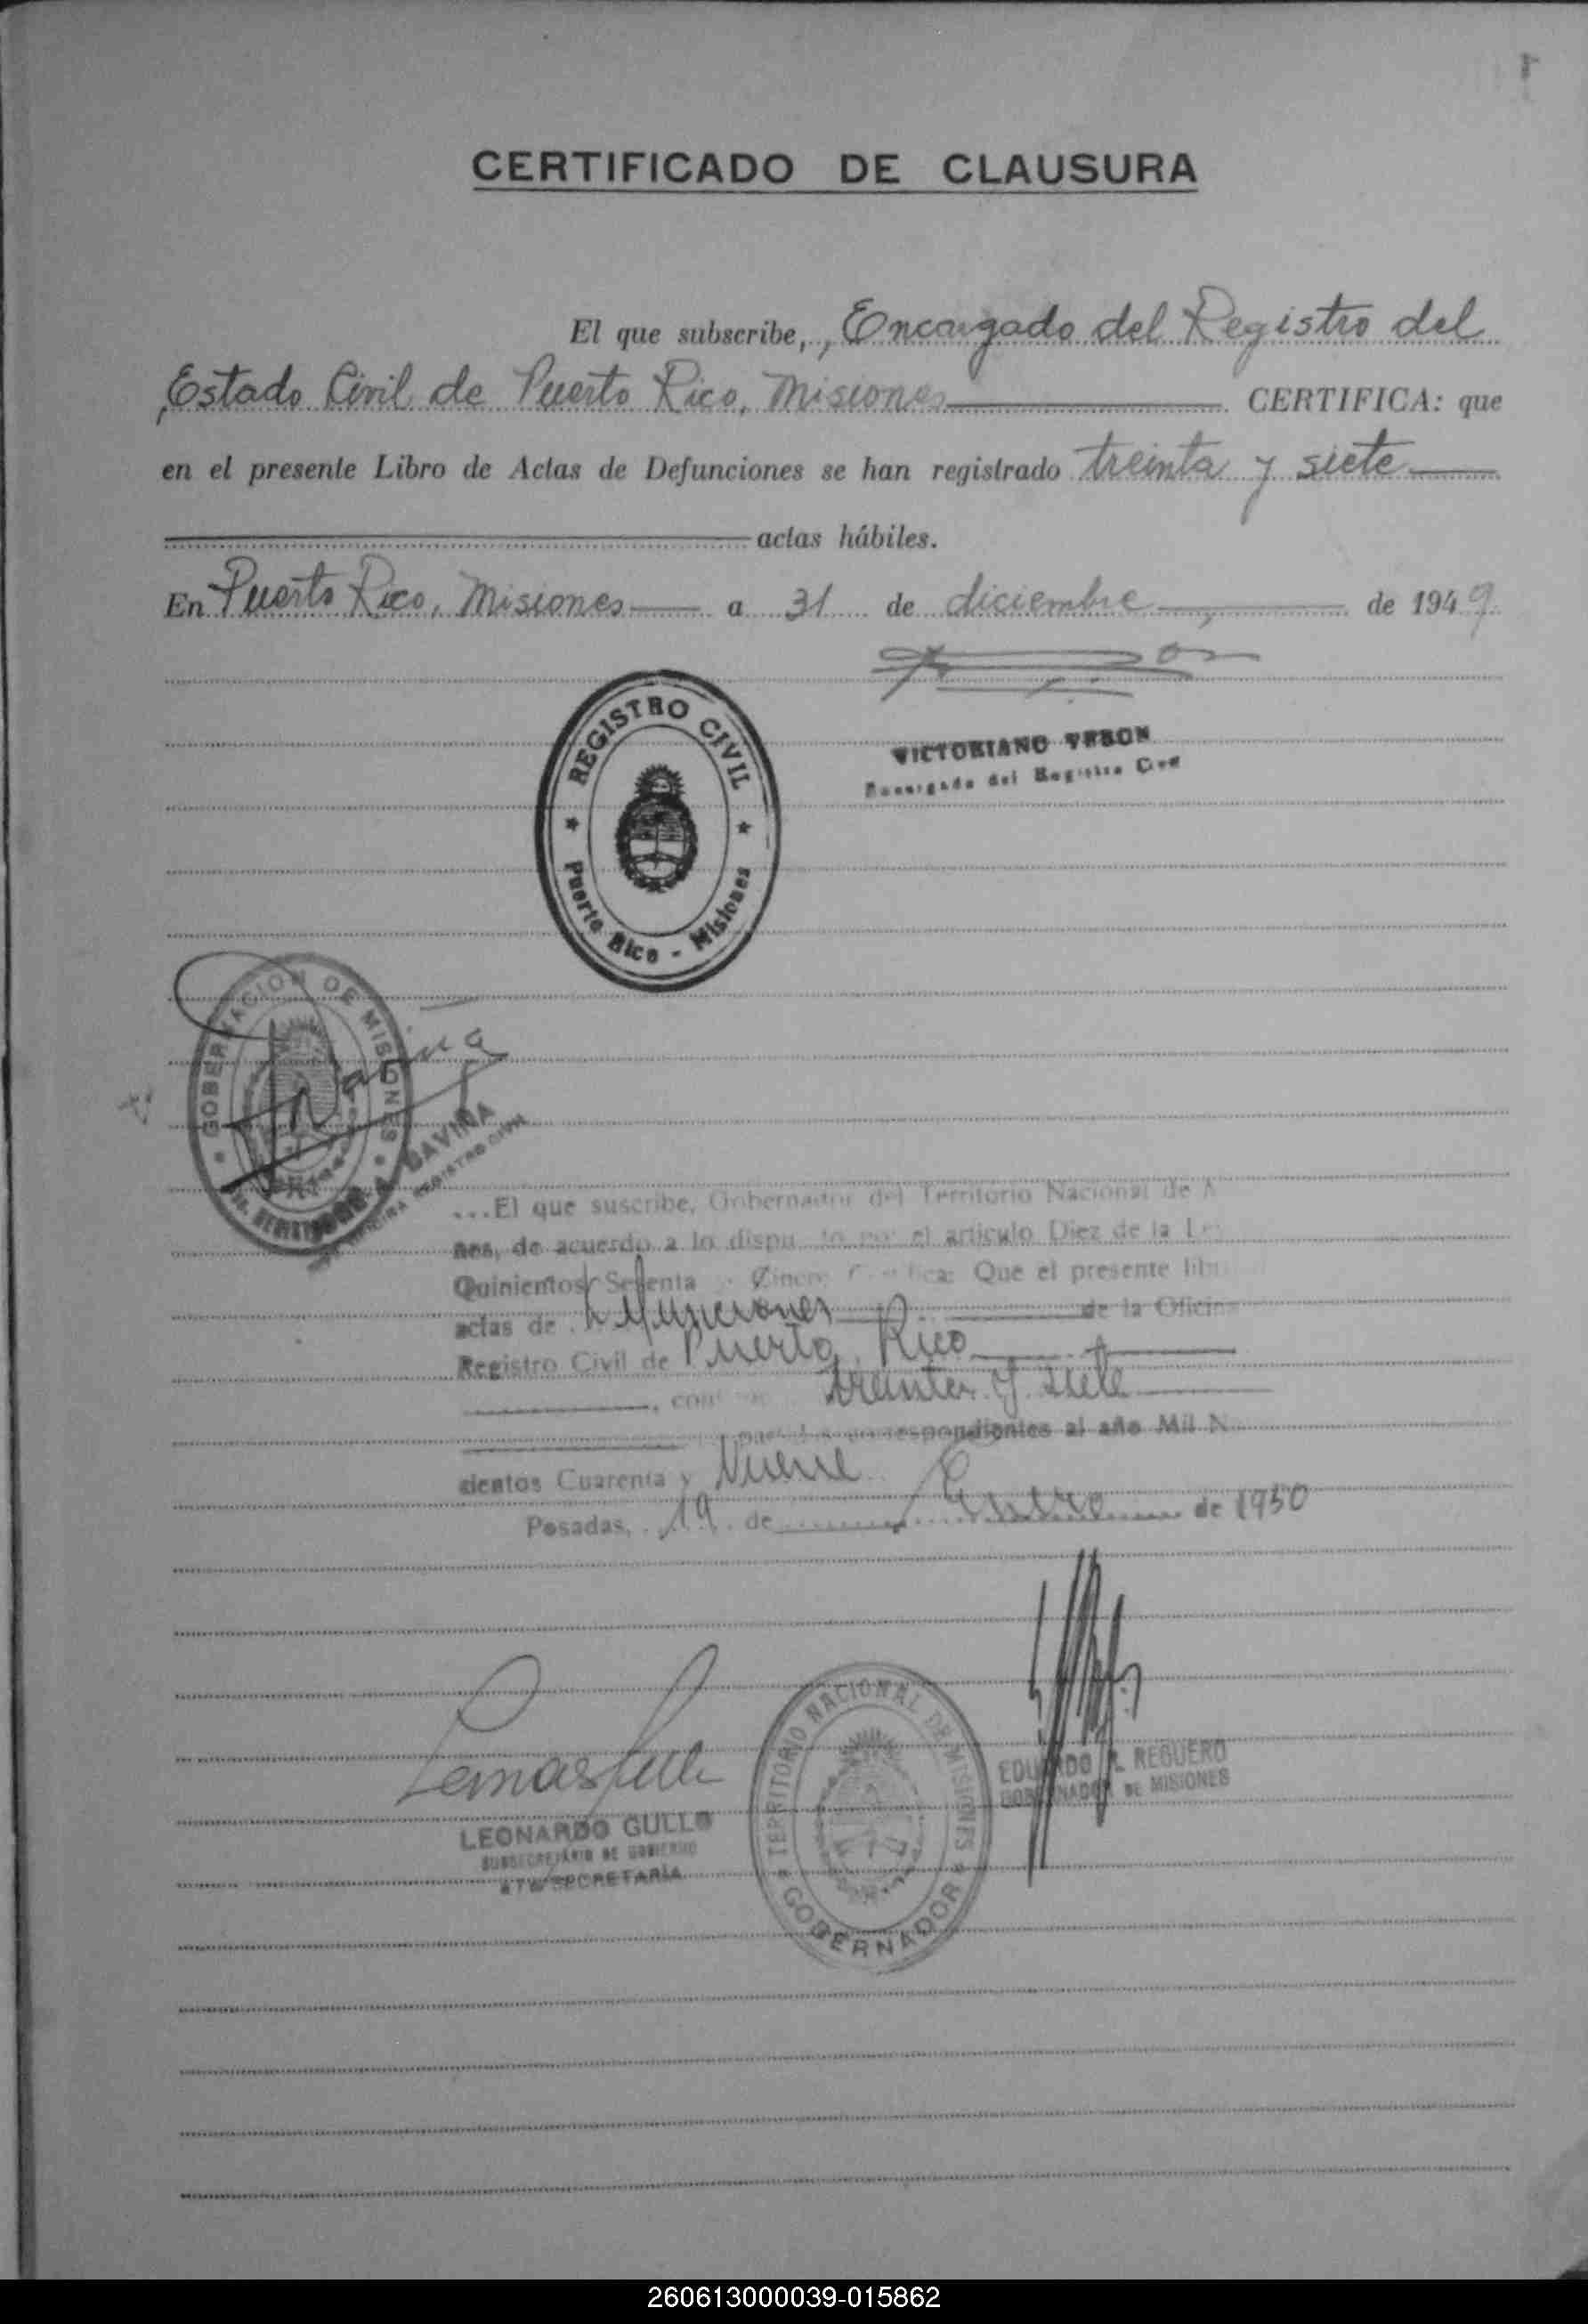 CERTIFICADO DE CLAUSURA
El que subscribe,, Encargado del Registro del
Estado Civil de Puerto Rico, Misiones CERTIFICA: que
en el presente Libro de Actas de Defunciones se han registrado treinta y siete
actas hábiles.
En Puerto Rico, Misiones a 31 de diciembre de 1949
REGISTRO CIVIL
Puerto Rico - Misiones
VICTORIANO
Encargado del Registro Civil
GOBERNACION DE MISIONES
GAVIÑA
REGISTRO CIVIL
...El que suscribe, Gobernador del Territorio Nacional de
nes, de acuerdo a lo dispu to por el artículo Diez de la
Quinientos Setenta Cinco, Que el presente
actas de Defunciones de la Oficin
Registro Civil de Puerto Rico
treinta y siete
correspondientes al año Mil N
cientos Cuarenta y Nueve
Posadas, 19 de Enero de 1950
LEONARDO GULLO
SUBSECRETARIO DE GOBIERNO
SECRETARÍA
TERRITORIO NACIONAL DE MISIONES
GOBERNADOR
EDUARDO REGUERO
GOBERNADOR DE MISIONES
260613000039-015862